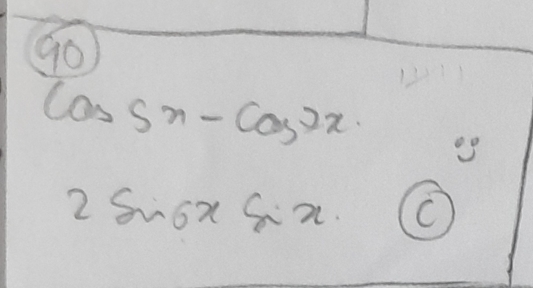 90
Cos 5x - Cos 7x.
2 Sin 6x Sin x. C